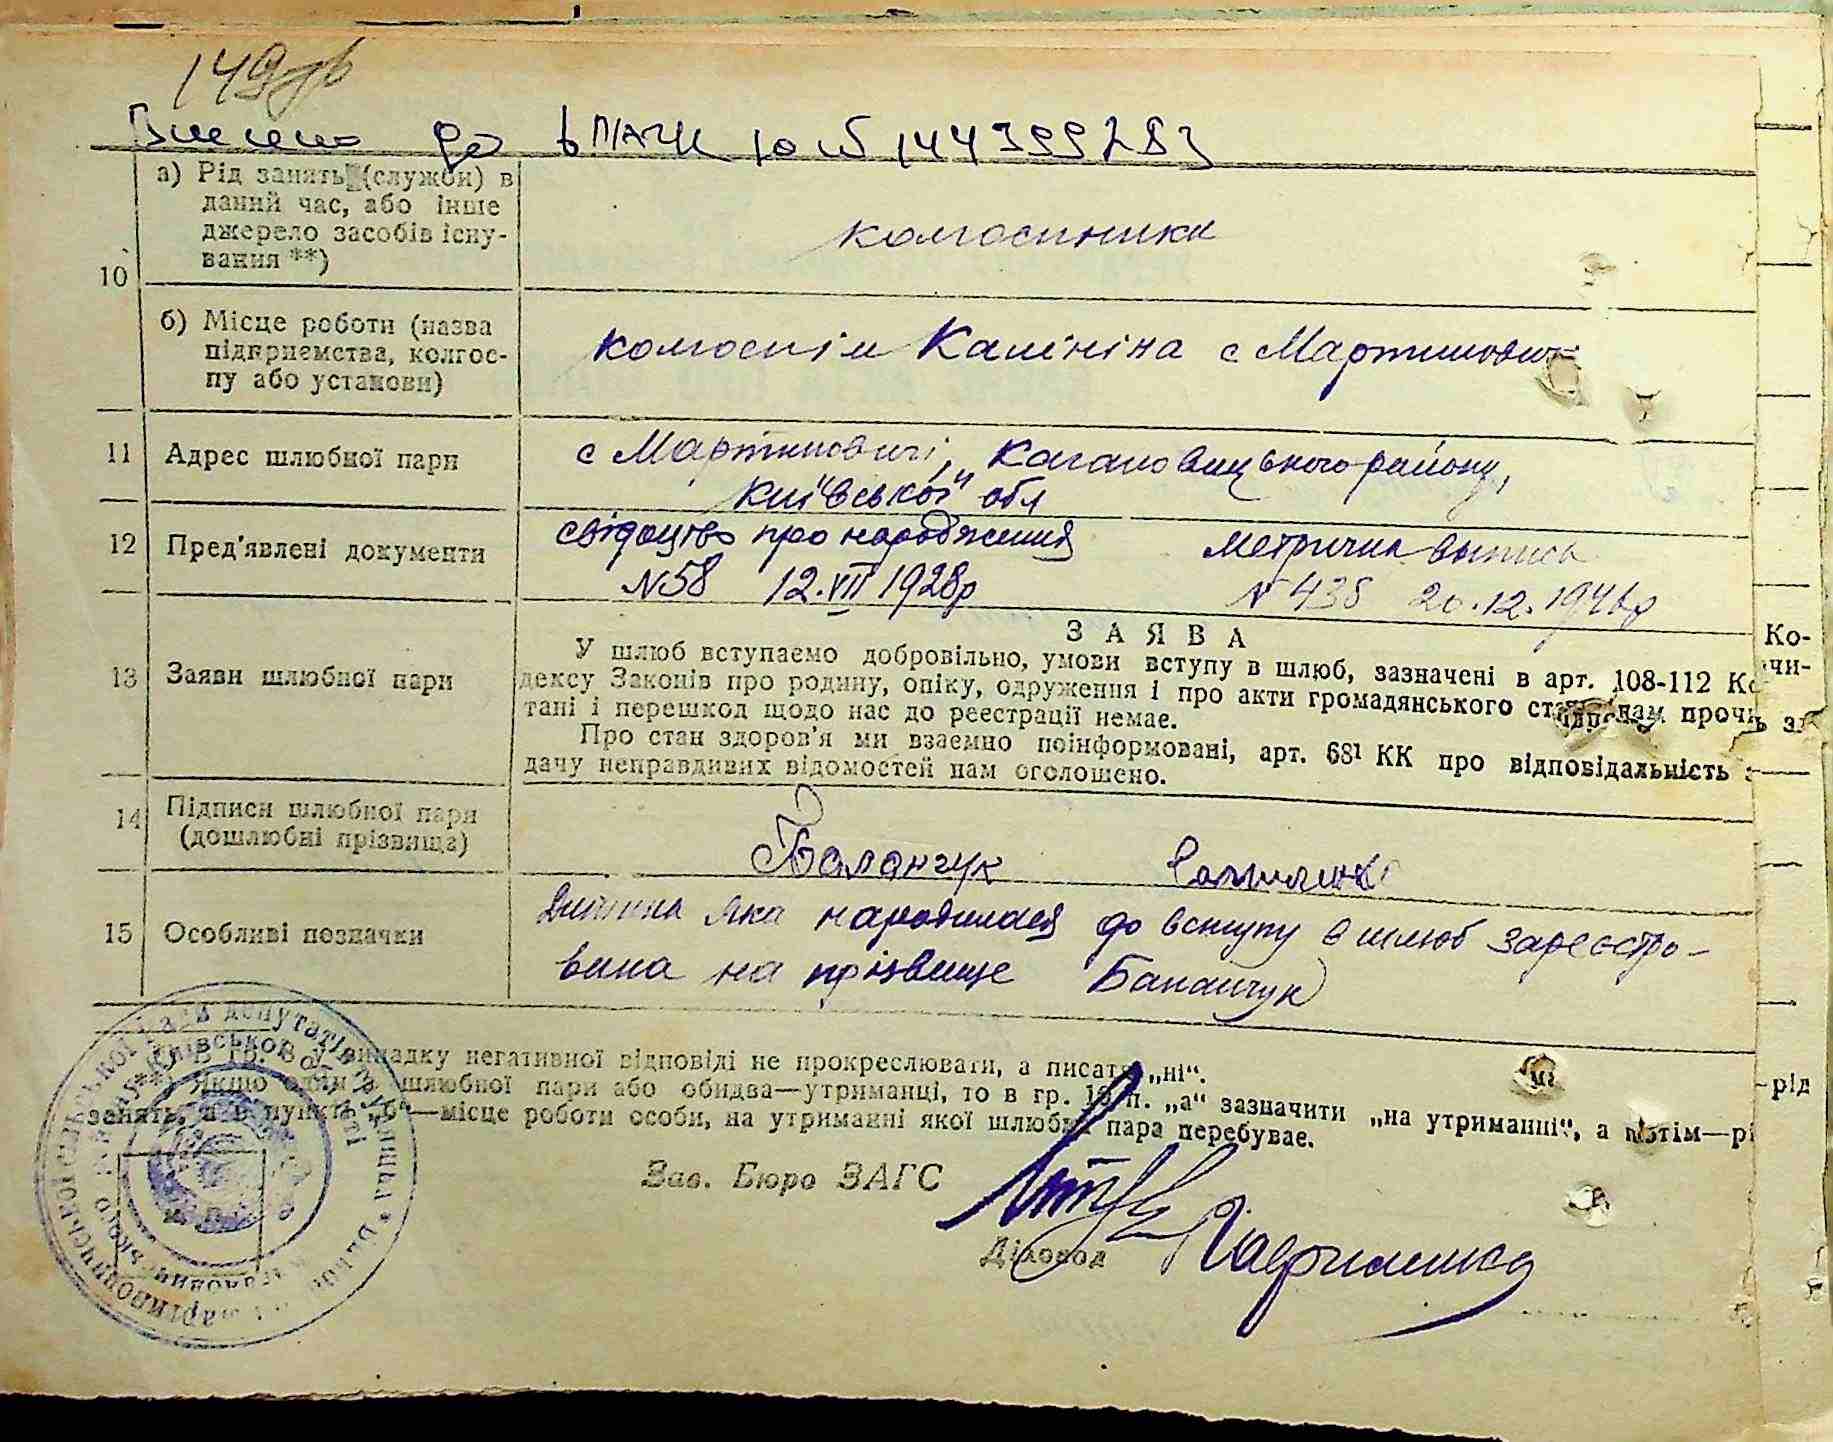 149зв
Внесено до
144399283
10
а) Рід занять (служби) в
даний час, або інше
джерело засобів існу-
вання **)
колгоспники
б) Місце роботи (назва
підприємства, колгос-
пу або установи)
колгосп ім Калініна с Мартиновичі
11
Адрес шлюбної пари
с Мартиновичі, Кагановицького району,
Київської обл
12
Пред'явлені документи
свідоцтво про народження
N58 12.VII 1928р
Метрична выпись
N 438
13
Заяви шлюбної пари
ЗАЯВА
У шлюб вступаємо добровільно, умови вступу в шлюб, зазначені в арт. 108-112 Ко-
дексу Законів про родину, опіку, одруження і про акти громадянського нам прочи-
тані і перешкод щодо нас до реєстрації немає.
Про стан здоров'я ми взаємно поінформовані, арт. 68¹ КК про відповідальність за
дачу неправдивих відомостей нам оголошено.
14
Підписи шлюбної пари
(дошлюбні прізвища)
15
Особливі позначки
Дитина яка народилася до вступу в шлюб зареєстро-
вана на прізвище
*) В гр. 8 у випадку негативної відповіді не прокреслювати, а писати „ні“.
**) Якщо один з шлюбної пари або обидва—утриманці, то в гр. 10 п. „а“ зазначити „на утриманні“, а потім—рід
занять, а в пункті „б“—місце роботи особи, на утриманні якої шлюбна пара перебуває.
Зав. Бюро ЗАГС
Діловод
М. П.
Ко-
чи-
рід